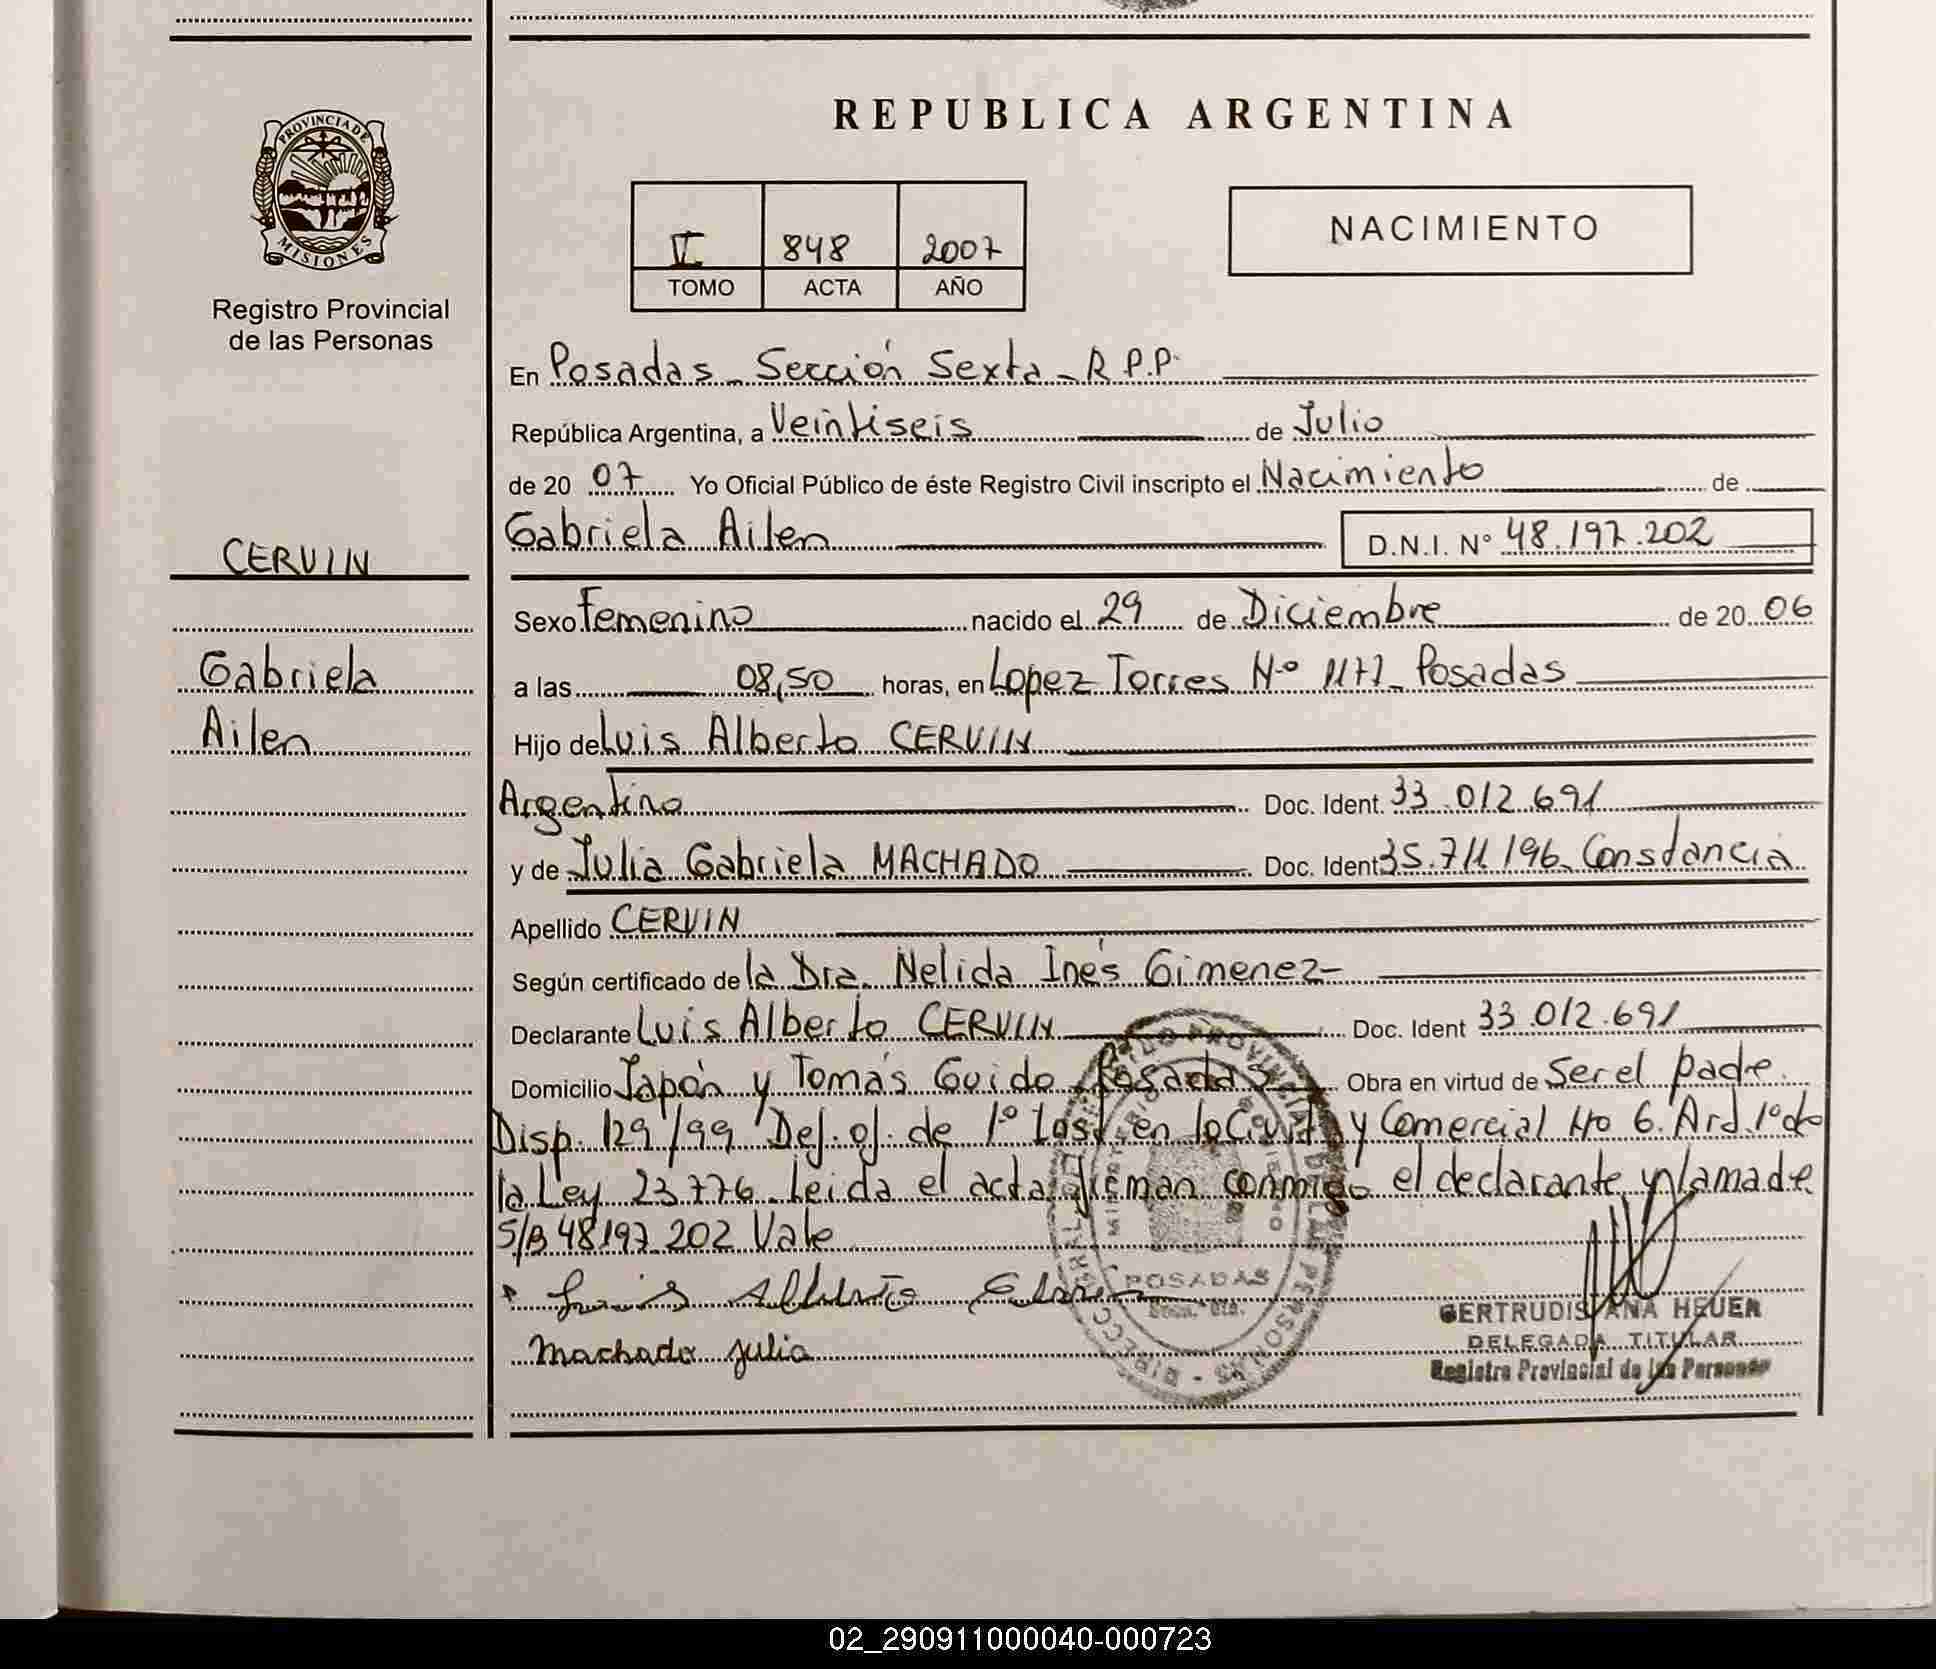 REPUBLICA ARGENTINA
PROVINCIA DE
MISIONES
Registro Provincial
de las Personas
848 2007
TOMO ACTA AÑO
NACIMIENTO
En Posadas - Sección Sexta - R.P.P.
República Argentina, a Veintiseis de Julio
de 20 07 Yo Oficial Público de éste Registro Civil inscripto el Nacimiento de
CERVIN
Gabriela Ailen D.N.I. N° 48.197.202
Sexo Femenino nacido el 29 de Diciembre de 20 06
Gabriela
a las 08,50 horas, en Lopez Torres N° 1177 - Posadas
Ailen
Hijo de Luis Alberto CERVIN
Argentino Doc. Ident. 33.012.691
y de Julia Gabriela MACHADO Doc. Ident 35.711.196 - Constancia
Apellido CERVIN
Según certificado de la Dra. Nelida Inés Gimenez -
Declarante Luis Alberto CERVIN Doc. Ident 33.012.691
Domicilio Japón y Tomás Guido - Posadas Obra en virtud de Ser el padre.
Disp. 129/99 Def. of. de 1° Inst en lo Civil y Comercial No 6. Ard. 1° de
la Ley 23776. Leida el acta firman conmigo el declarante y la madre
S/B 48197.202 Vale
Luis Alberto
Machado Julia
POSADAS
GERTRUDIS ANA HEUER
DELEGADA TITULAR
Registro Provincial de las Personas
02_290911000040-000723